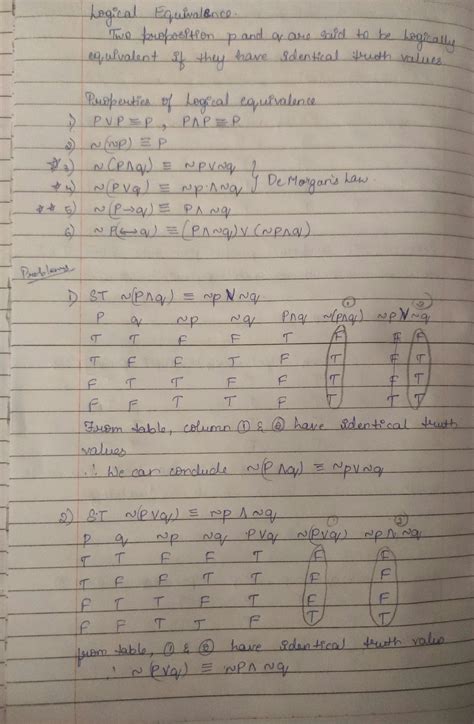 Logical Equivalence.
Two proposition p and q are said to be logically
equivalent if they have identical truth values
Properties of Logical equivalence
1) P∨P≡P , P∧P≡P
2) ~(~p) ≡ P
** 3) ~(P∧q) ≡ ~P∨~q
** 4) ~(P∨q) ≡ ~p∧~q } De Morgan's Law.
** 5) ~(P→q) ≡ P∧~q
6) ~P(↔q) ≡ (P∧~q)∨(~p∧q)
Problems
1) ST ~(P∧q) ≡ ~p∨~q
① ②
P q ~p ~q P∧q ~(p∧q) ~p∨~q
T T F F T F F F
T F F T F T F T
F T T F F T F T
F F T T F T T T
From table, column ① & ② have identical truth
values
∴ We can conclude ~(P∧q) ≡ ~p∨~q
2) ST ~(P∨q) ≡ ~p∧~q
① ②
P q ~p ~q P∨q ~(P∨q) ~p∧~q
T T F F T F F
T F F T T F F
F T T F T F F
F F T T F T T
from table, ① & ② have identical truth value
∴ ~(P∨q) ≡ ~P∧~q